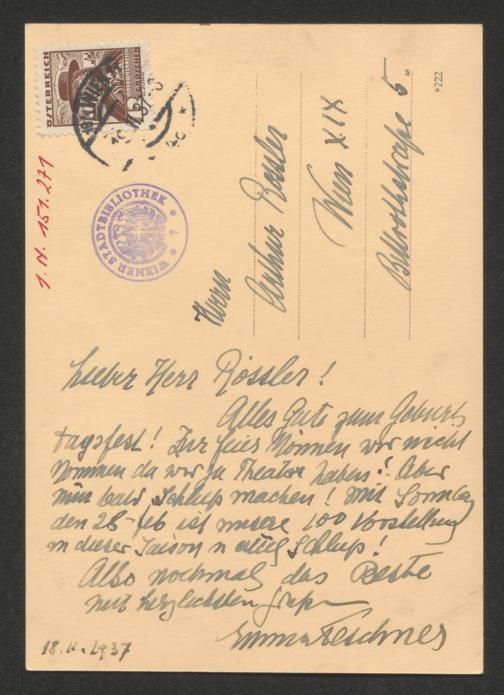 ÖSTERREICH
WIENER STADTBIBLIOTHEK * 7 *
I. N. 151.271
8222
Herrn
Arthur Rössler
Wien XIX
5.
Lieber Herr Rössler!
Alles Gute zum Geburts
tagsfest! Zur feier können wir nicht
kommen da wir ja Theater haben! Aber
nun bald Schluß machen! Mit Sonntag
den 28-feb ist unsere 100 Vorstellung
in dieser Saison u auch Schluß!
Also nochmal das Beste
mit herzlichsten Gruß
Emma Teschner
18.II.1937